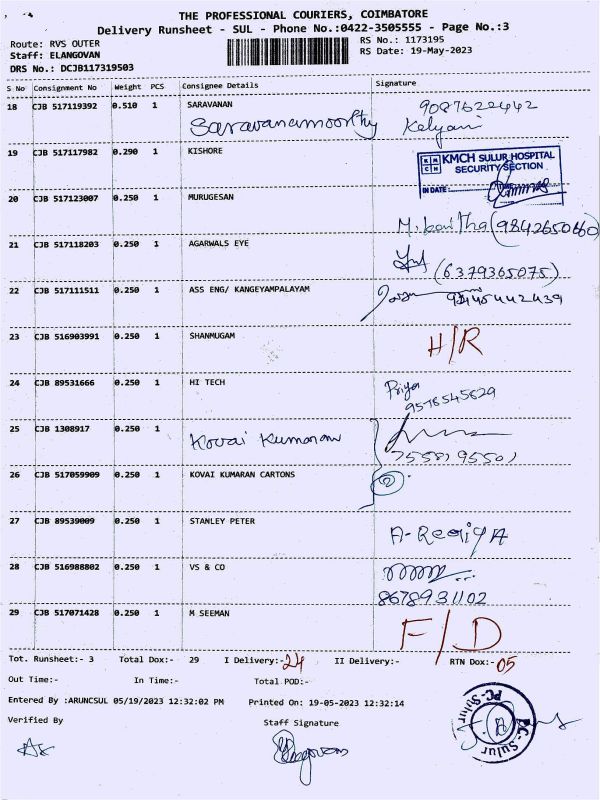 THE PROFESSIONAL COURIERS, COIMBATORE
Delivery Runsheet - SUL - Phone No.:0422-3505555 - Page No.:3
Route: RVS OUTER
RS No.: 1173195
Staff: ELANGOVAN
RS Date: 19-May-2023
DRS No.: DCJB117319503
S No Consignment No Weight PCS Consignee Details Signature
18 CJB 517119392 0.510 1 SARAVANAN 9087622442
Saravanamoorthy Kalyani
19 CJB 517117982 0.290 1 KISHORE
KMCH SULUR HOSPITAL
SECURITY SECTION
IN DATE:
20 CJB 517123007 0.250 1 MURUGESAN
21 CJB 517118203 0.250 1 AGARWALS EYE
(6379365075)
22 CJB 517111511 0.250 1 ASS ENG/ KANGEYAMPALAYAM
23 CJB 516903991 0.250 1 SHANMUGAM H/R
24 CJB 89531666 0.250 1 HI TECH Priya
9578545629
25 CJB 1308917 0.250 1 Kovai Kumaran
26 CJB 517059909 0.250 1 KOVAI KUMARAN CARTONS 2
27 CJB 89539009 0.250 1 STANLEY PETER
28 CJB 516988802 0.250 1 VS & CO
8678931102
29 CJB 517071428 0.250 1 M SEEMAN F/D
Tot. Runsheet:- 3 Total Dox:- 29 I Delivery:- 24 II Delivery:- RTN Dox:- 05
Out Time:- In Time:- Total POD:-
Entered By :ARUNCSUL 05/19/2023 12:32:02 PM Printed On: 19-05-2023 12:32:14
Verified By Staff Signature
PC-Sulur PC-Sulur